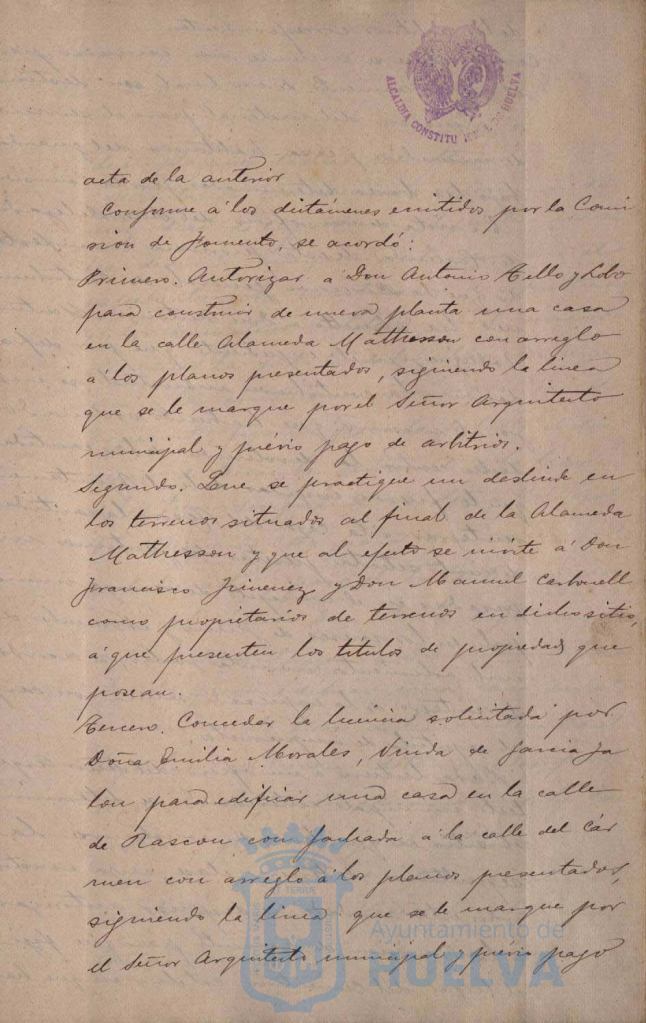 ALCALDIA CONSTITU DE HUELVA
acta de la anterior
Conforme á los dictámenes emitidos por la Comi
sion de Fomento, se acordó:
Primero. Autorizar a Don Antonio Tello y Lobo
para construir de nueva planta una casa
en la calle Alameda Mathesson con arreglo
á los planos presentados, siguiendo la linea
que se le marque por el Señor Arquitecto
municipal y prévio pago de arbitrios.
Segundo. Que se practique un deslinde en
los terrenos situados al final de la Alameda
Mathesson y que al efecto se invite á Don
Francisco Jimenez y Don Manuel Carbonell
como propietarios de terrenos en dicho sitio,
á que presenten los títulos de propiedad que
posean.
Tercero. Conceder la licencia solicitada por
Doña Emilia Morales, Viuda de Garcia Ja
lon para edificar una casa en la calle
de Rascon con fachada á la calle del Cár
men con arreglo á los planos presentados,
siguiendo la linea que se le marque por
el Señor Arquitecto municipal y prévio pago
Ayuntamiento de
HUELVA